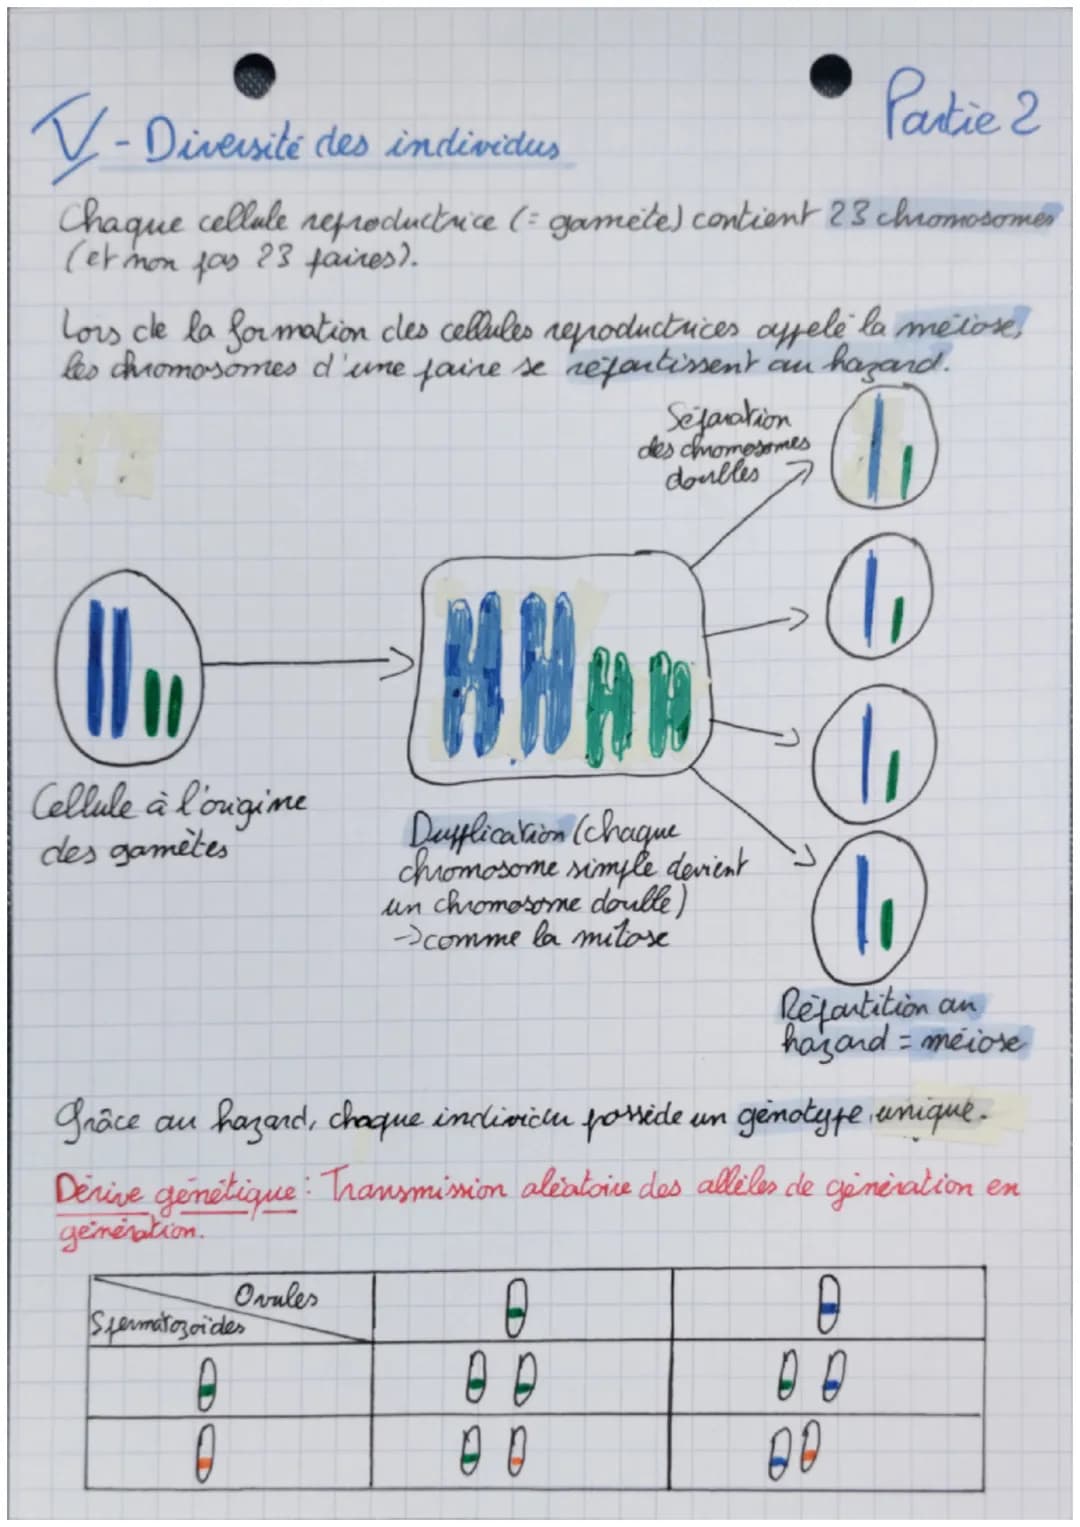 Partie 2
V - Diversité des individus
Chaque cellule reproductrice (= gamète) contient 23 chromosomes
(et non pas 23 paires).
Lors de la formation des cellules reproductrices appelé la méiose,
les chromosomes d'une paire se répartissent au hazard.
Séparation
des chromosomes
doubles
Cellule à l'origine
des gamètes
Dupplication (chaque
chromosome simple devient
un chromosome double)
→ comme la mitose
Répartition au
hazard = méiose
Grâce au hazard, chaque individu possède un génotype unique.
Dérive génétique : Transmission aléatoire des allèles de génération en
génération.
Ovules
Spermatozoïdes